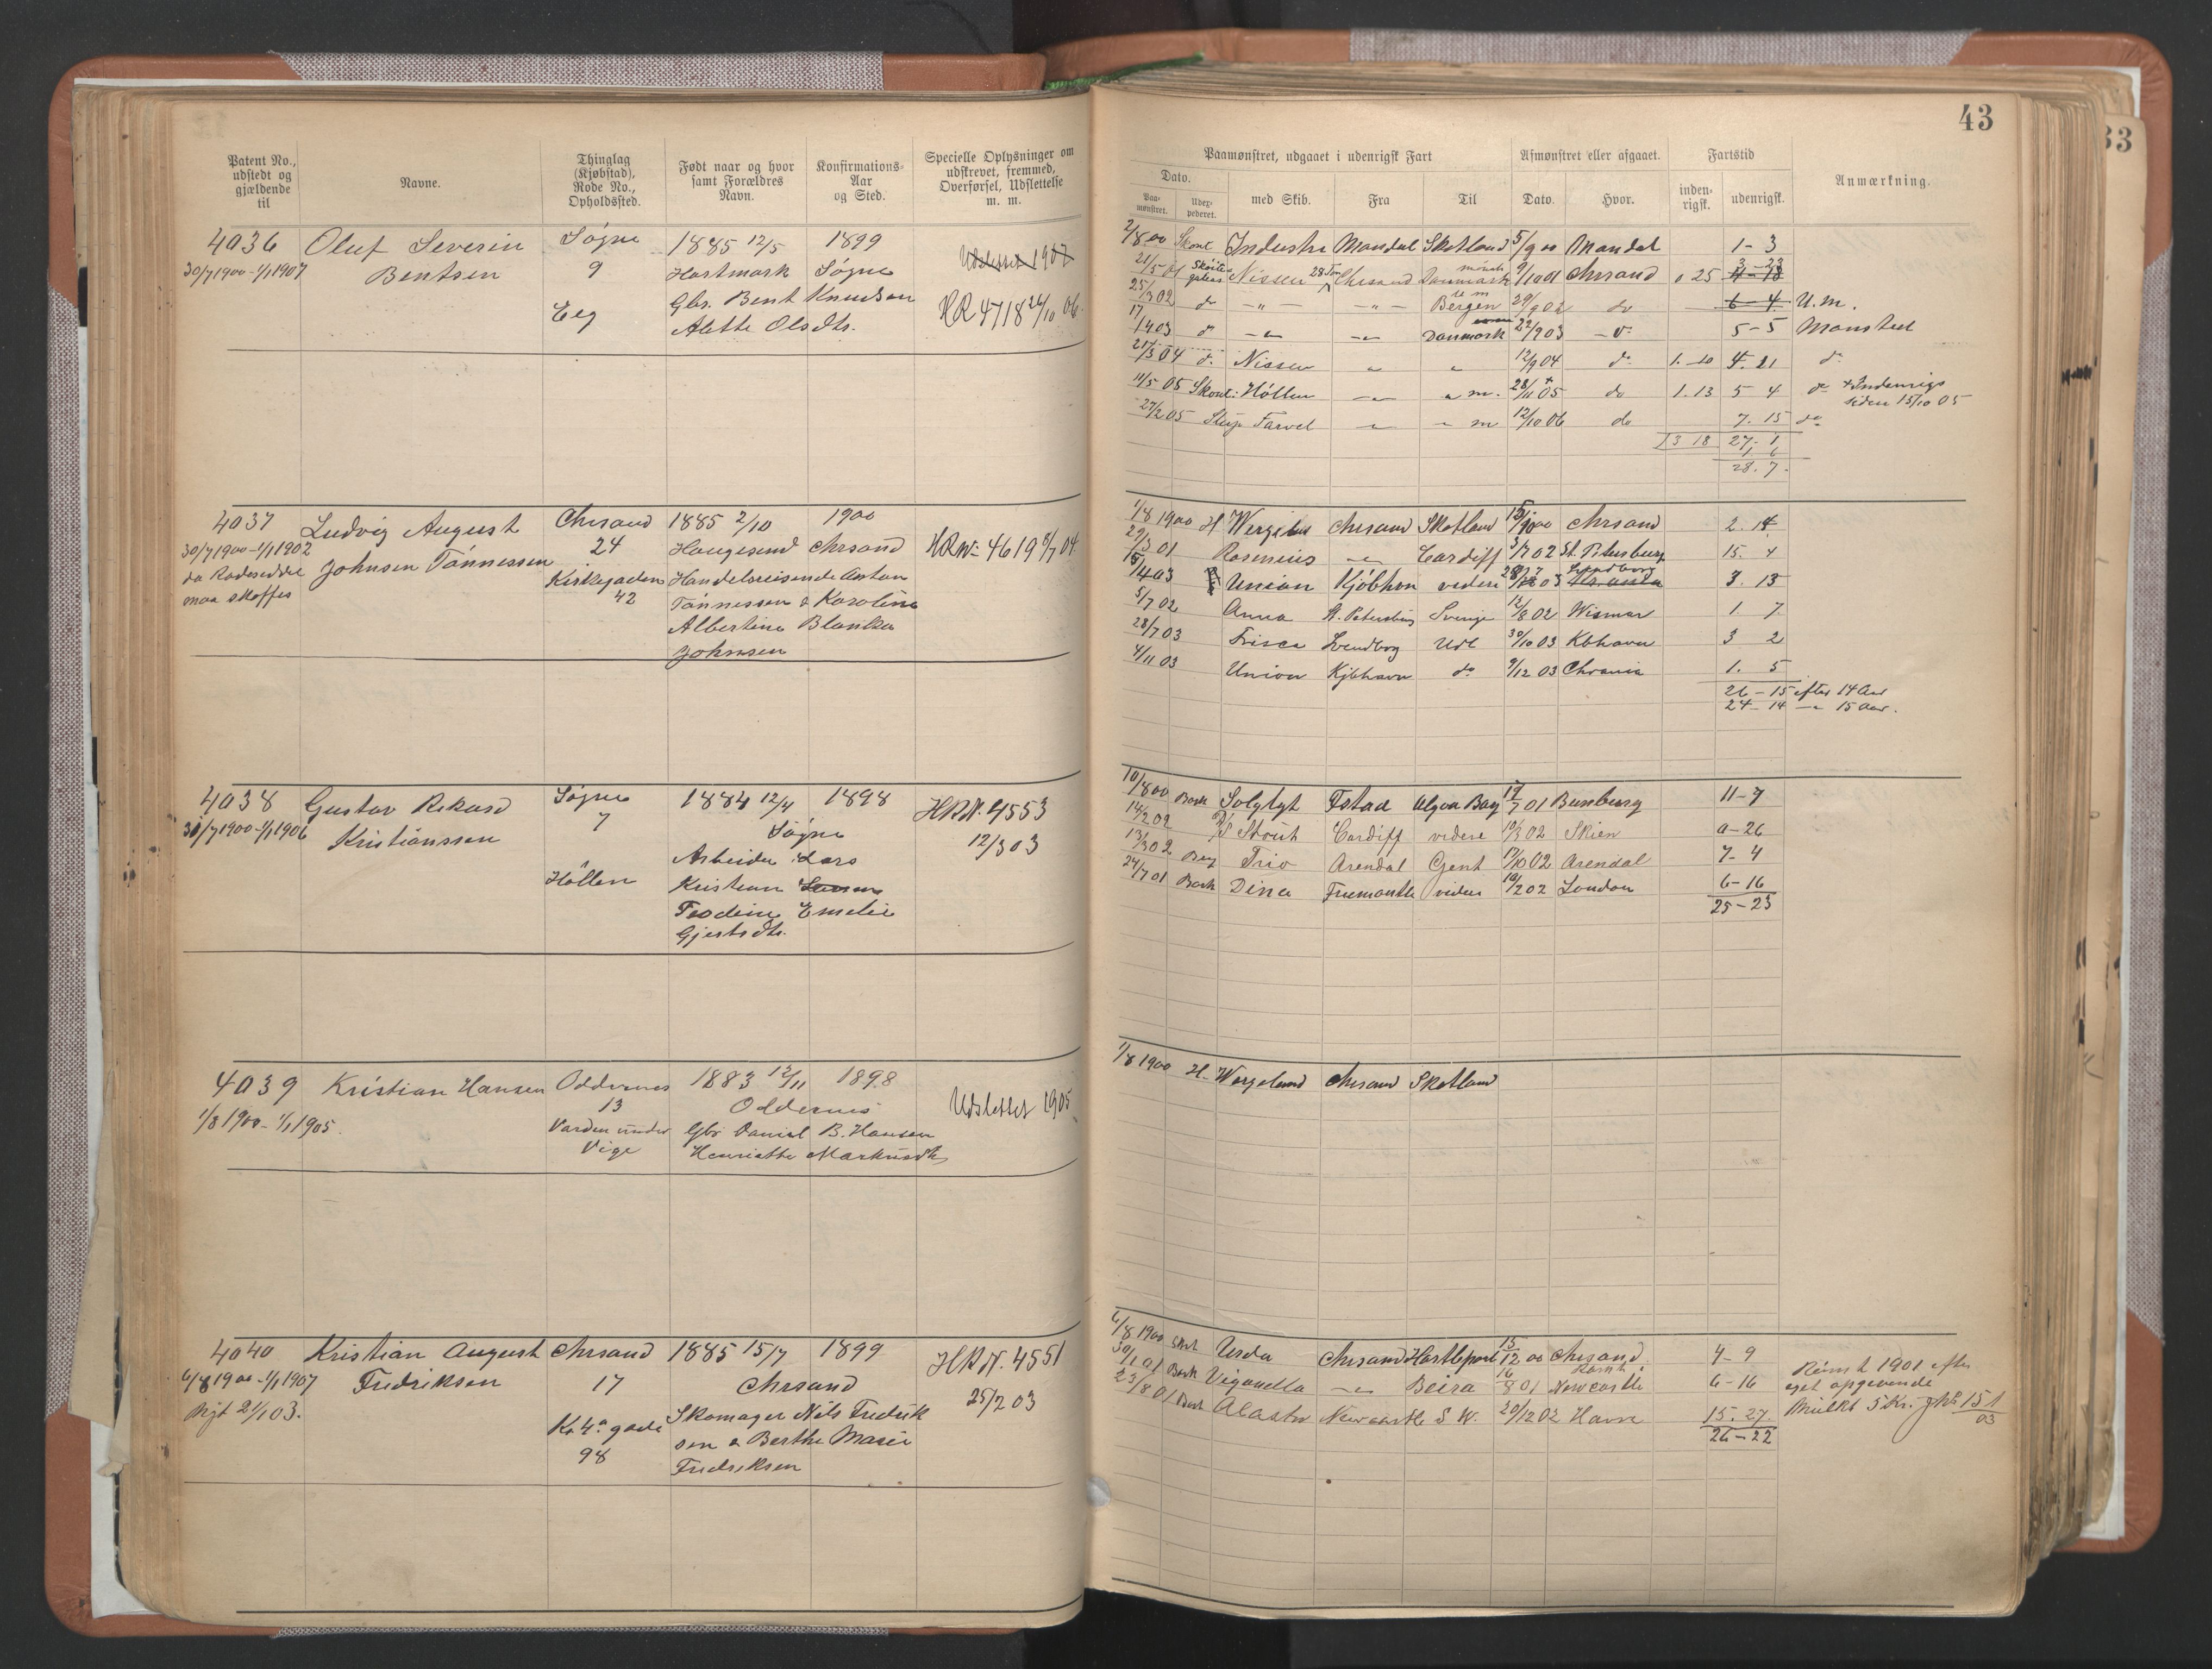 Patent No., udstedt og gjældende til
Navne.
Thinglag (Kjøbstad), Rode No., Opholdssted.
Født naar og hvor samt Forældres Navn.
Konfirmations- Aar og Sted.
Specielle Oplysninger om udskrevet, fremmed, Overførsel, Udslettelse m. m.
4036 Oluf Severin Søgne 1885 12/5 1899
30/7 1900 - 1/1 1907 Bentsen 9 Hartmark Søgne Udslettet 1907
Eeg Gbr. Bent Knudsen HR 4718 26/10 06
Alette Olsdtr.
4037 Ludvig August Chrsand 1885 2/10 1900
30/7 1900 - 1/1 1902 Johnsen Tønnessen 24 Haugesund Chrsand HR No 4619 8/7 04
da Rodeseddel Kirkegaden Handelsreisende Anton
maa skaffes 42 Tønnessen & Karoline
Albertine Blanka
Johnsen
4038 Gustav Rikard Søgne 1884 12/4 1898 HR N. 4553
30/7 1900 - 1/1 1906 Kristianssen 7 Søgne 12/3 03
Arbeider Lars
Høllen Kristian
Teodine Emelie
Gjertsdtr.
4039 Kristian Hansen Oddernes 1883 12/11 1898
1/8 1900 - 1/1 1905. 13 Oddernes Udslettet 1905
Varden under Gbr Daniel B. Hansen
Vige Henriette
4040 Kristian August Chrsand 1885 15/7 1899 HR N. 4551
6/8 1900 - 1/1 1907 Fredriksen 17 Chrsand 25/2 03
21/1 03. K. 4a gade Skomager Nils Fredrik
98 sen & Berthe Marie
Fredriksen
43
33
Paamønstret, udgaaet i udenrigsk Fart
Afmønstret eller afgaaet.
Fartstid
Anmærkning.
Dato.
Paa- mønstret.
Udex- pederet.
med Skib.
Fra
Til
Dato.
Hvor.
inden- rigsk.
udenrigsk.
2/8 00 Skont Industri Mandal Skotland 5/9 00 Mandal 1-3
21/5 01 Nissen Chrsand Danmark 9/10 01 Chrsand 0 25 3-23 4-18
25/3 02 do -"- -"- Bergen 29/9 02 do 6-4 U.m.
17/4 03 do -"- -"- Danmark 22/9 03 -"- 5-5 Mønstret
21/3 04 d. Nissen " " 12/9 04 do 1.10 4.21 do
11/5 05 Skont. Høllen -"- " m. 28/11 05 do 1.13 5 4 do + Indenrigs
siden 15/10 05
27/2 05 Slup Farvel " " m 12/10 06 do 7.15 do
3 18 27.1
1.6
28.7.
1/8 1900 H Chrsand Skotland 15/10 00 Chrsand 2.14
29/3 01 Rosenius -"- Cardiff 3/7 02 St. Petersburg 15.4
15/4 03 Union Kjøbhvn videre 28/7 03 Svendborg 3.13
5/7 02 Anna St. Petersburg Sverige 12/8 02 Wismar 1.7
28/7 03 Frisca Svendborg Udl 30/10 03 Kbhavn 3 2
4/11 03 Union Kjøbhavn do 9/12 03 Chrania 1.5
26-15 efter 14 Aar
24-14 -"- 15 Aar.
10/8 00 Bark Solglyt Fstad Algoa Bay 17/7 01 Bunburg 11-7
14/2 02 D/S Stout Cardiff videre 10/3 02 Skien 0-26
13/3 02 Brig Trio Arendal Gent 17/10 02 Arendal 7-4
24/7 01 Bark Dina Fremantle videre 10/2 02 London 6-16
25-23
1/8 1900 H. Wergeland Chrsand Skotland
6/8 1900 Skt Usda Chrsand Hartlepool 15/12 00 Chrsand. 4-9
30/1 01 Bark Vigandla -"- Beira 16/8 01 Rømt Newcastle 6-16 Rømt 1901 efter
eget opgivende
23/8 01 Bark Alastor Newcastle S W. 20/12 02 Havre 15.27. Mulkt 5 Kr. 15/1 03
26-22